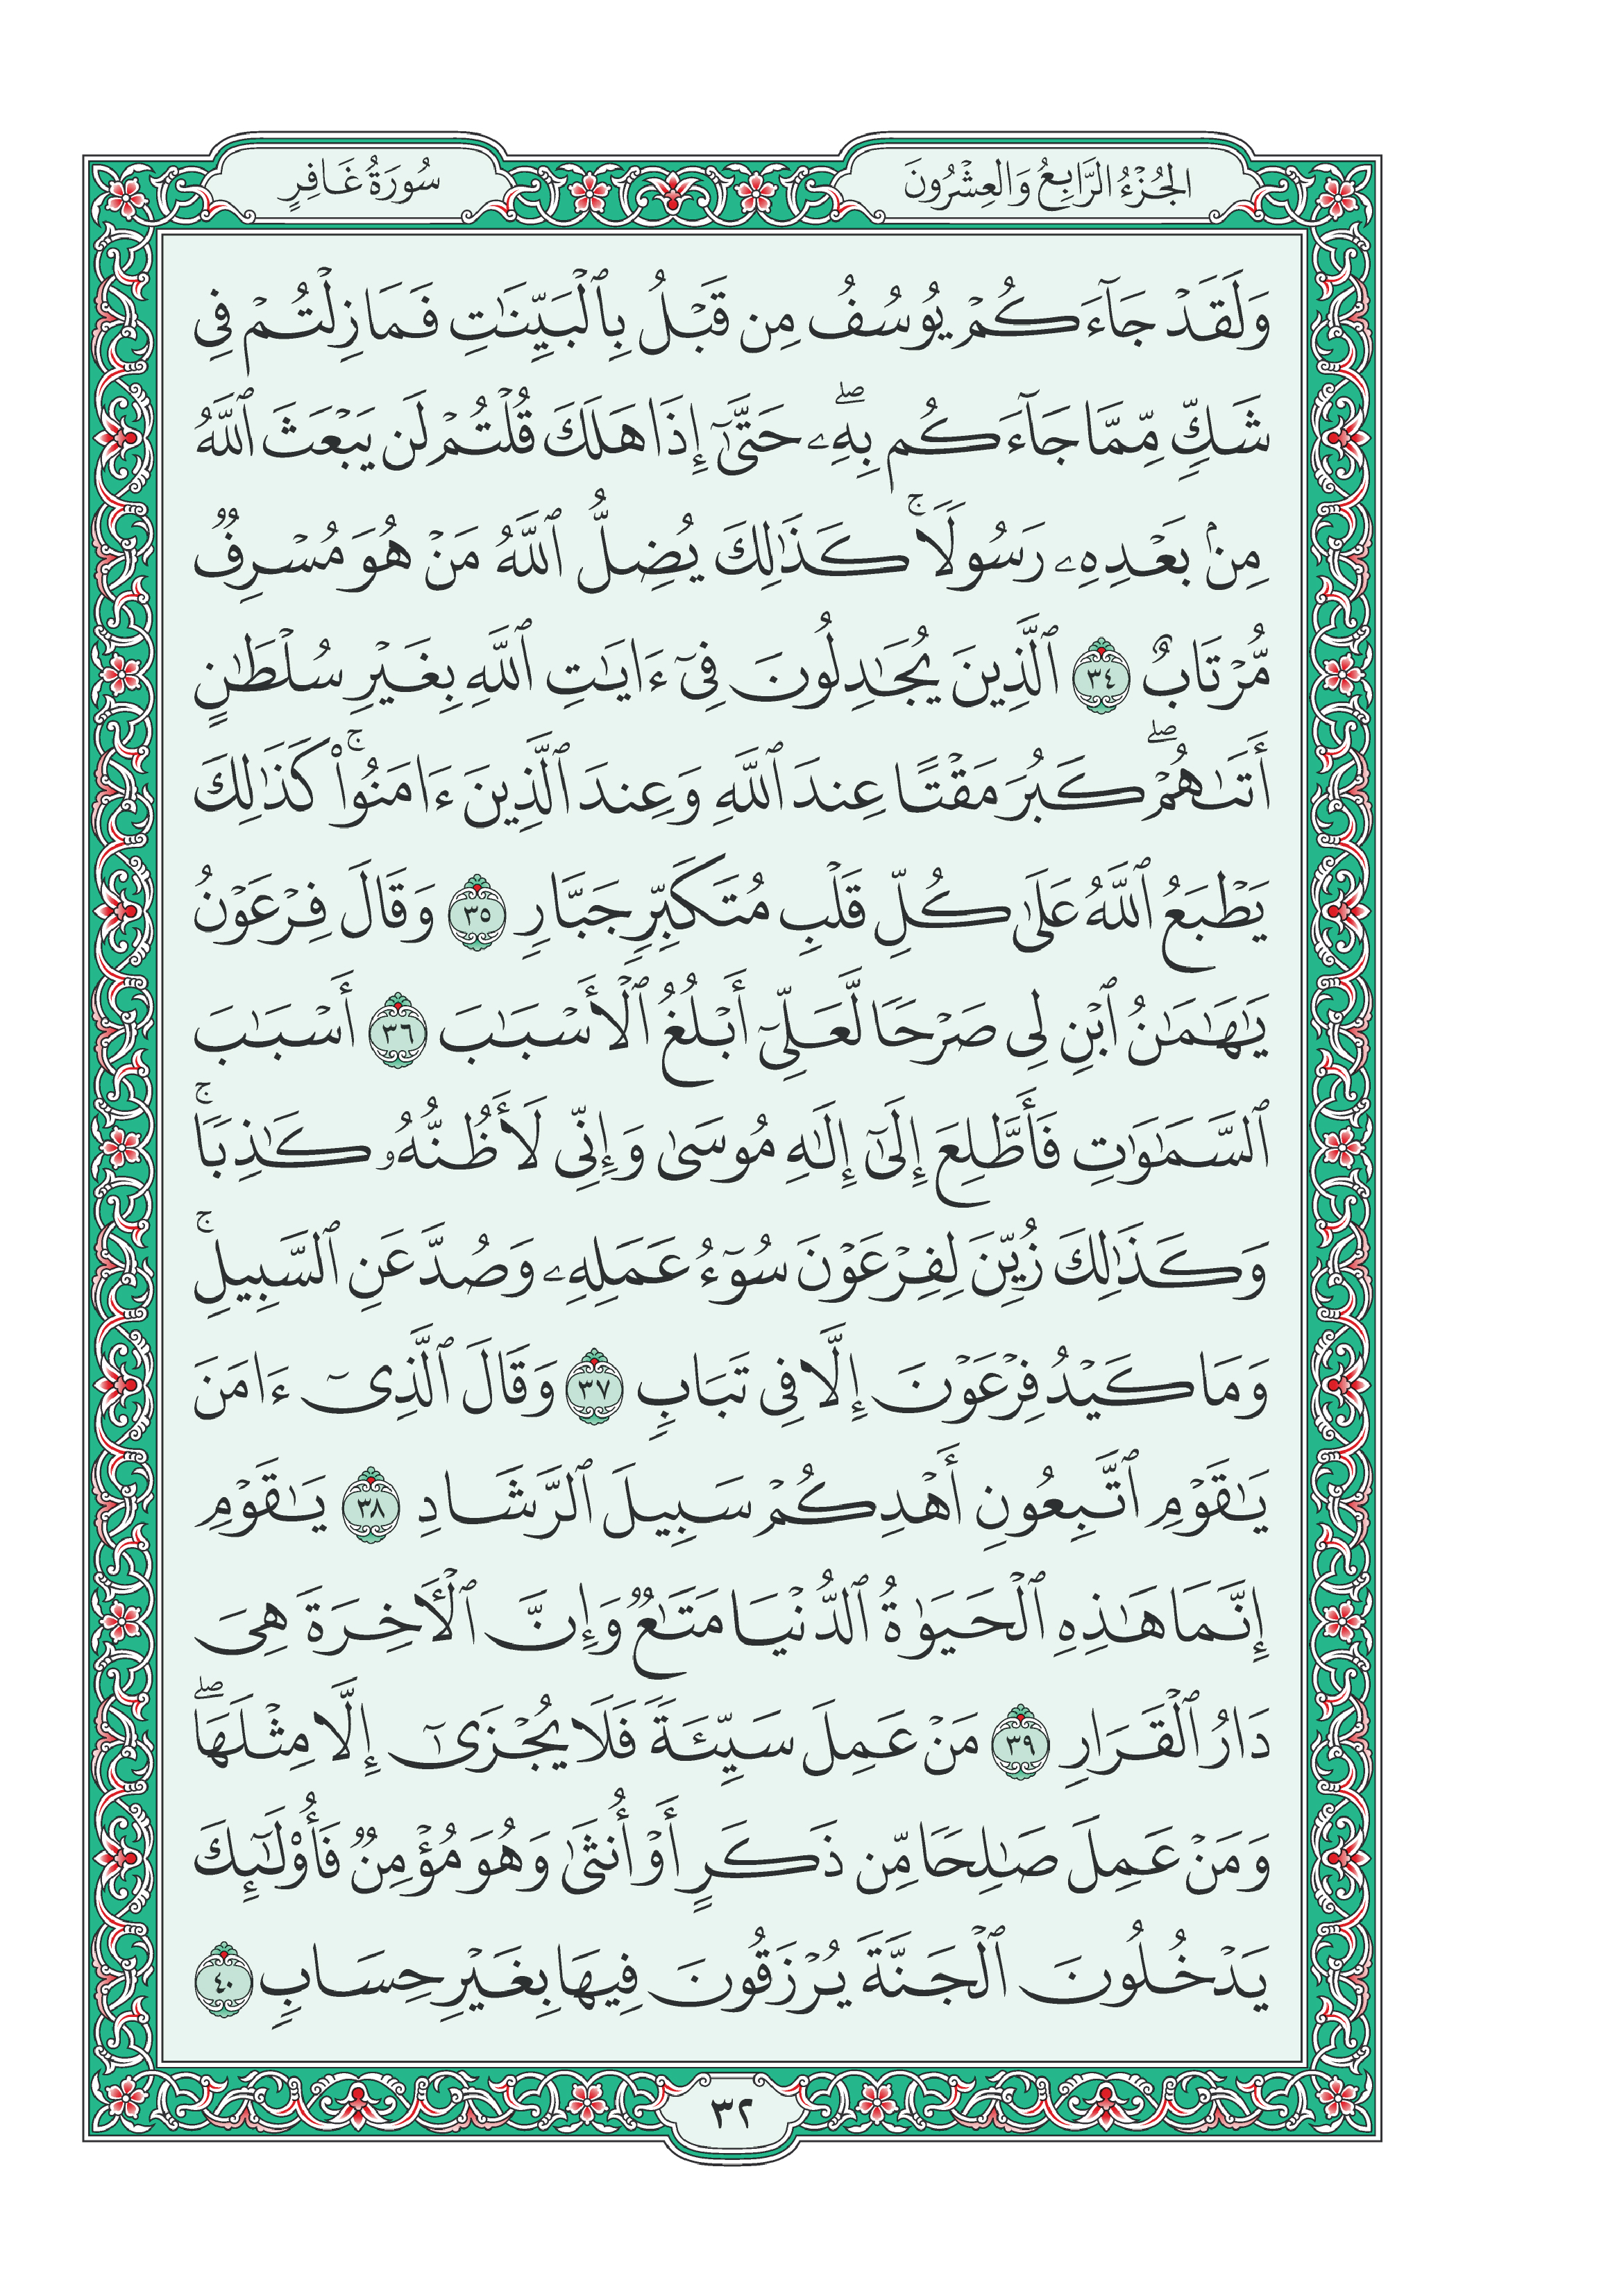 الجُزْءُ الرَّابِعُ وَالعِشْرُونَ
سُورَةُ غَافِرٍ
وَلَقَدۡ جَآءَكُمۡ يُوسُفُ مِن قَبۡلُ بِٱلۡبَيِّنَٰتِ فَمَا زِلۡتُمۡ فِي
شَكّٖ مِّمَّا جَآءَكُم بِهِۦۖ حَتَّىٰٓ إِذَا هَلَكَ قُلۡتُمۡ لَن يَبۡعَثَ ٱللَّهُ
مِنۢ بَعۡدِهِۦ رَسُولٗاۚ كَذَٰلِكَ يُضِلُّ ٱللَّهُ مَنۡ هُوَ مُسۡرِفٞ
مُّرۡتَابٌ ٣٤ ٱلَّذِينَ يُجَٰدِلُونَ فِيٓ ءَايَٰتِ ٱللَّهِ بِغَيۡرِ سُلۡطَٰنٍ
أَتَىٰهُمۡۖ كَبُرَ مَقۡتًا عِندَ ٱللَّهِ وَعِندَ ٱلَّذِينَ ءَامَنُواْۚ كَذَٰلِكَ
يَطۡبَعُ ٱللَّهُ عَلَىٰ كُلِّ قَلۡبِ مُتَكَبِّرٖ جَبَّارٖ ٣٥ وَقَالَ فِرۡعَوۡنُ
يَٰهَٰمَٰنُ ٱبۡنِ لِي صَرۡحٗا لَّعَلِّيٓ أَبۡلُغُ ٱلۡأَسۡبَٰبَ ٣٦ أَسۡبَٰبَ
ٱلسَّمَٰوَٰتِ فَأَطَّلِعَ إِلَىٰٓ إِلَٰهِ مُوسَىٰ وَإِنِّي لَأَظُنُّهُۥ كَٰذِبٗاۚ
وَكَذَٰلِكَ زُيِّنَ لِفِرۡعَوۡنَ سُوٓءُ عَمَلِهِۦ وَصُدَّ عَنِ ٱلسَّبِيلِۚ
وَمَا كَيۡدُ فِرۡعَوۡنَ إِلَّا فِي تَبَابٖ ٣٧ وَقَالَ ٱلَّذِيٓ ءَامَنَ
يَٰقَوۡمِ ٱتَّبِعُونِ أَهۡدِكُمۡ سَبِيلَ ٱلرَّشَادِ ٣٨ يَٰقَوۡمِ
إِنَّمَا هَٰذِهِ ٱلۡحَيَوٰةُ ٱلدُّنۡيَا مَتَٰعٞ وَإِنَّ ٱلۡأٓخِرَةَ هِيَ
دَارُ ٱلۡقَرَارِ ٣٩ مَنۡ عَمِلَ سَيِّئَةٗ فَلَا يُجۡزَىٰٓ إِلَّا مِثۡلَهَاۖ
وَمَنۡ عَمِلَ صَٰلِحٗا مِّن ذَكَرٍ أَوۡ أُنثَىٰ وَهُوَ مُؤۡمِنٞ فَأُوْلَٰٓئِكَ
يَدۡخُلُونَ ٱلۡجَنَّةَ يُرۡزَقُونَ فِيهَا بِغَيۡرِ حِسَابٖ ٤٠
٣٢